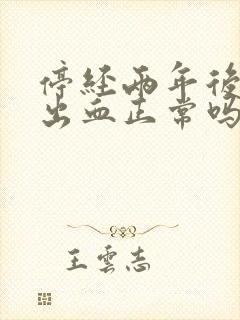 停經兩年後
出血正常嗎
王雲志